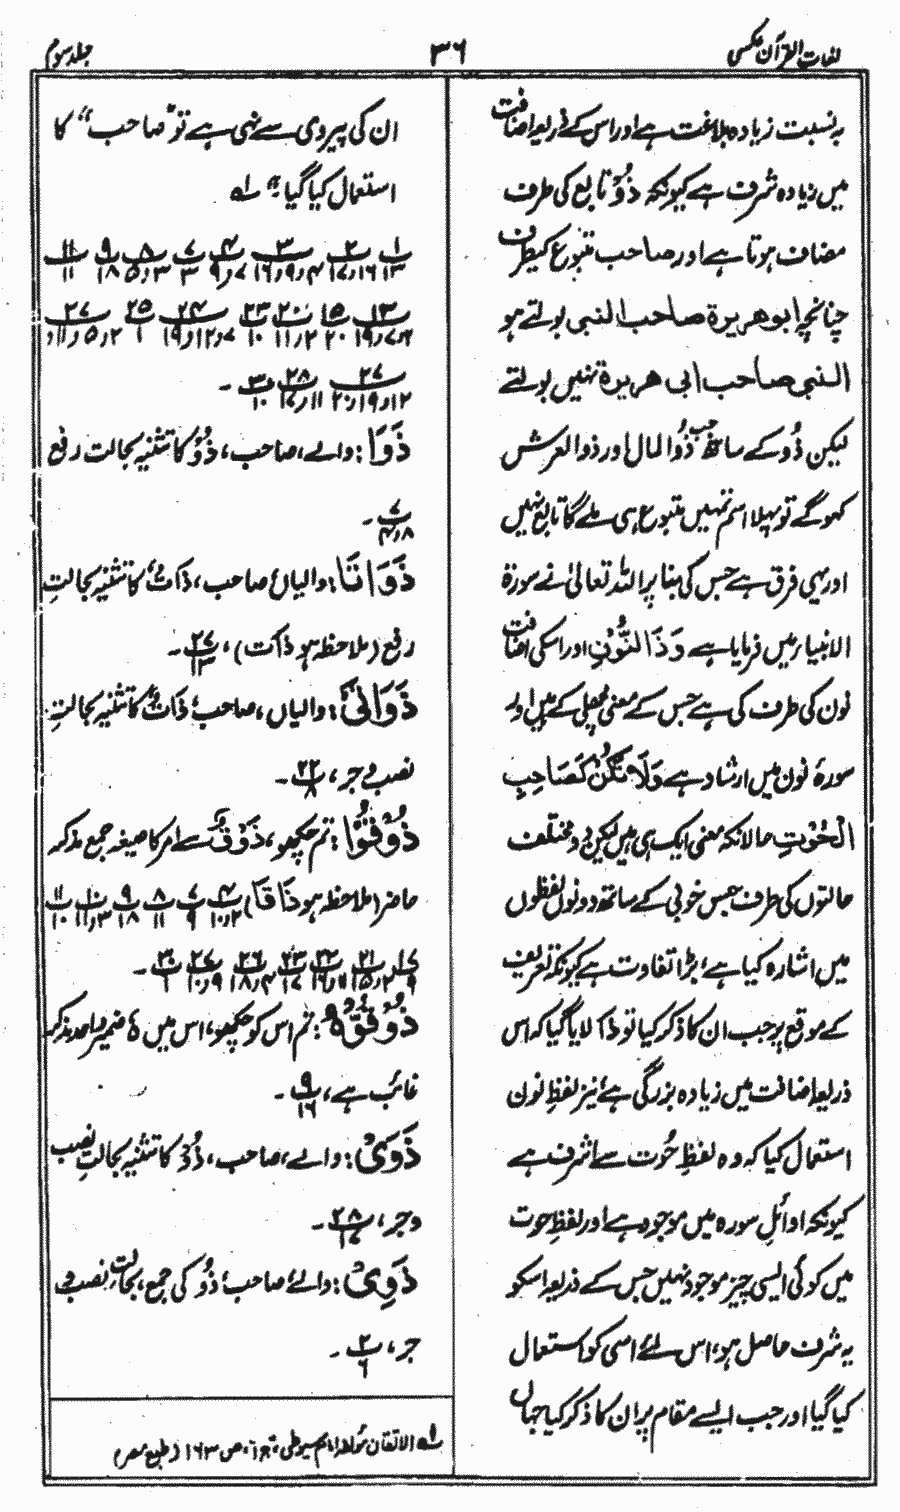 لغات القرآن عکسی
۳۶
جلد سوم
بہ نسبت زیادہ بلاغت ہے اور اس کے ذریعہ اضافت
میں زیادہ شرف ہے کیونکہ ذُوْ تابع کی طرف
مضاف ہوتا ہے اور صاحب متبوع کیطرف
چنانچہ ابوھریرۃ صاحب النبی بولتے ہو
النبی صاحب ابی ھریرۃ نہیں بولتے
لیکن ذُو کے ساتھ جب ذُوالمال اور ذوالعرش
کہو گے تو پہلا اسم تمہیں متبوع ہی ملے گا تابع نہیں
اور یہی فرق ہے جس کی بنا پر اللہ تعالیٰ نے سورۃ
الانبیاء میں فرمایا ہے وَذَا النُّوْنِ اور اسکی اضافت
نون کی طرف کی ہے جس کے معنی مچھلی کے ہیں اور
سورۂ نون میں ارشاد ہے وَلَا تَكُنْ كَصَاحِبِ
الْحُوْتِ حالانکہ معنی ایک ہی ہیں لیکن دو مختلف
حالتوں کی طرف جس خوبی کے ساتھ دونوں لفظوں
میں اشارہ کیا ہے، بڑا تفاوت ہے کیونکہ تعریف
کے موقع پر جب ان کا ذکر کیا تو ذا لایا گیا کہ اس
ذریعہ اضافت میں زیادہ بزرگی ہے، نیز لفظِ نون
استعمال کیا کہ وہ لفظِ حُوت سے اشرف ہے
کیونکہ اوائلِ سورہ میں موجود ہے اور لفظِ حوت
میں کوئی ایسی چیز موجود نہیں جس کے ذریعہ اسکو
یہ شرف حاصل ہو، اس لئے اسی کو استعمال
کیا گیا اور جب ایسے مقام پر ان کا ذکر کیا جہاں
ان کی پیروی سے نہی ہے تو "صاحب" کا
استعمال کیا گیا ہے لہ
پ۱ ۱۳ پ۲ ۱۶و۱۷ پ۳ ۴و۹و۱۶ پ۴ ۷و۹ پ۷ ۳ پ۸ ۳و۵ پ۹ ۱۸ پ۱۱ ۱۱
پ۱۳ ۶و۷و۱۹ پ۱۵ ۲۰ پ۲۰ ۲و۱۱ پ۲۳ ۱۰ پ۲۴ ۷و۱۲و۱۹ پ۲۵ ۱ پ۲۷ ۲و۵و۱۱و
پ۲۷ ۱۲و۱۹و۲۰ پ۲۸ ۱۱و۱۷ پ۳۰ ۱۰ ۔
ذَوَا: والے، صاحب، ذُوْ کا تثنیہ بحالت رفع
پ۷ ۸و۴ ۔
ذَوَاتَا: والیاں، صاحب، ذَاتُ، کا تثنیہ بحالتِ
رفع (ملاحظہ ہو ذات)، پ۲۷ ۱۳ ۔
ذَوَاتَیْ: والیاں، صاحب، ذَاتُ کا تثنیہ بحالتِ
نصب و جر، پ۲۲ ۸ ۔
ذُوْقُوْا: تم چکھو، ذَوْقٌ سے امر کا صیغہ جمع مذکر
حاضر (ملاحظہ ہو ذَاقَا) پ۴ ۲و۱۰ پ۷ ۹ پ۸ ۱۱ پ۹ ۱۸ پ۱۰ ۳و۱۱ پ۱۱ ۱۰
پ۱۷ ۹ پ۲۱ ۲و۱۵ پ۲۲ ۱۱و۱۶ پ۲۳ ۱۷ پ۲۶ ۴و۱۸ پ۲۷ ۹و۱۰ پ۳۰ ۱ ۔
ذُوْقُوْہُ: تم اس کو چکھو، اس میں ہٗ ضمیر واحد مذکر
غائب ہے، پ۹ ۱۶ ۔
ذَوَیْ: والے، صاحب، ذُوْ کا تثنیہ بحالتِ نصب
وجر، پ۲۸ ۱۷ ۔
ذَوِیْ: والے، صاحب، ذُوْ کی جمع، بحالتِ نصب و
جر، پ۲ ۶ ۔
لہ الاتقان مؤلفہ امام سیوطی، ج ۱، ص ۱۶۳ (طبع مصر)